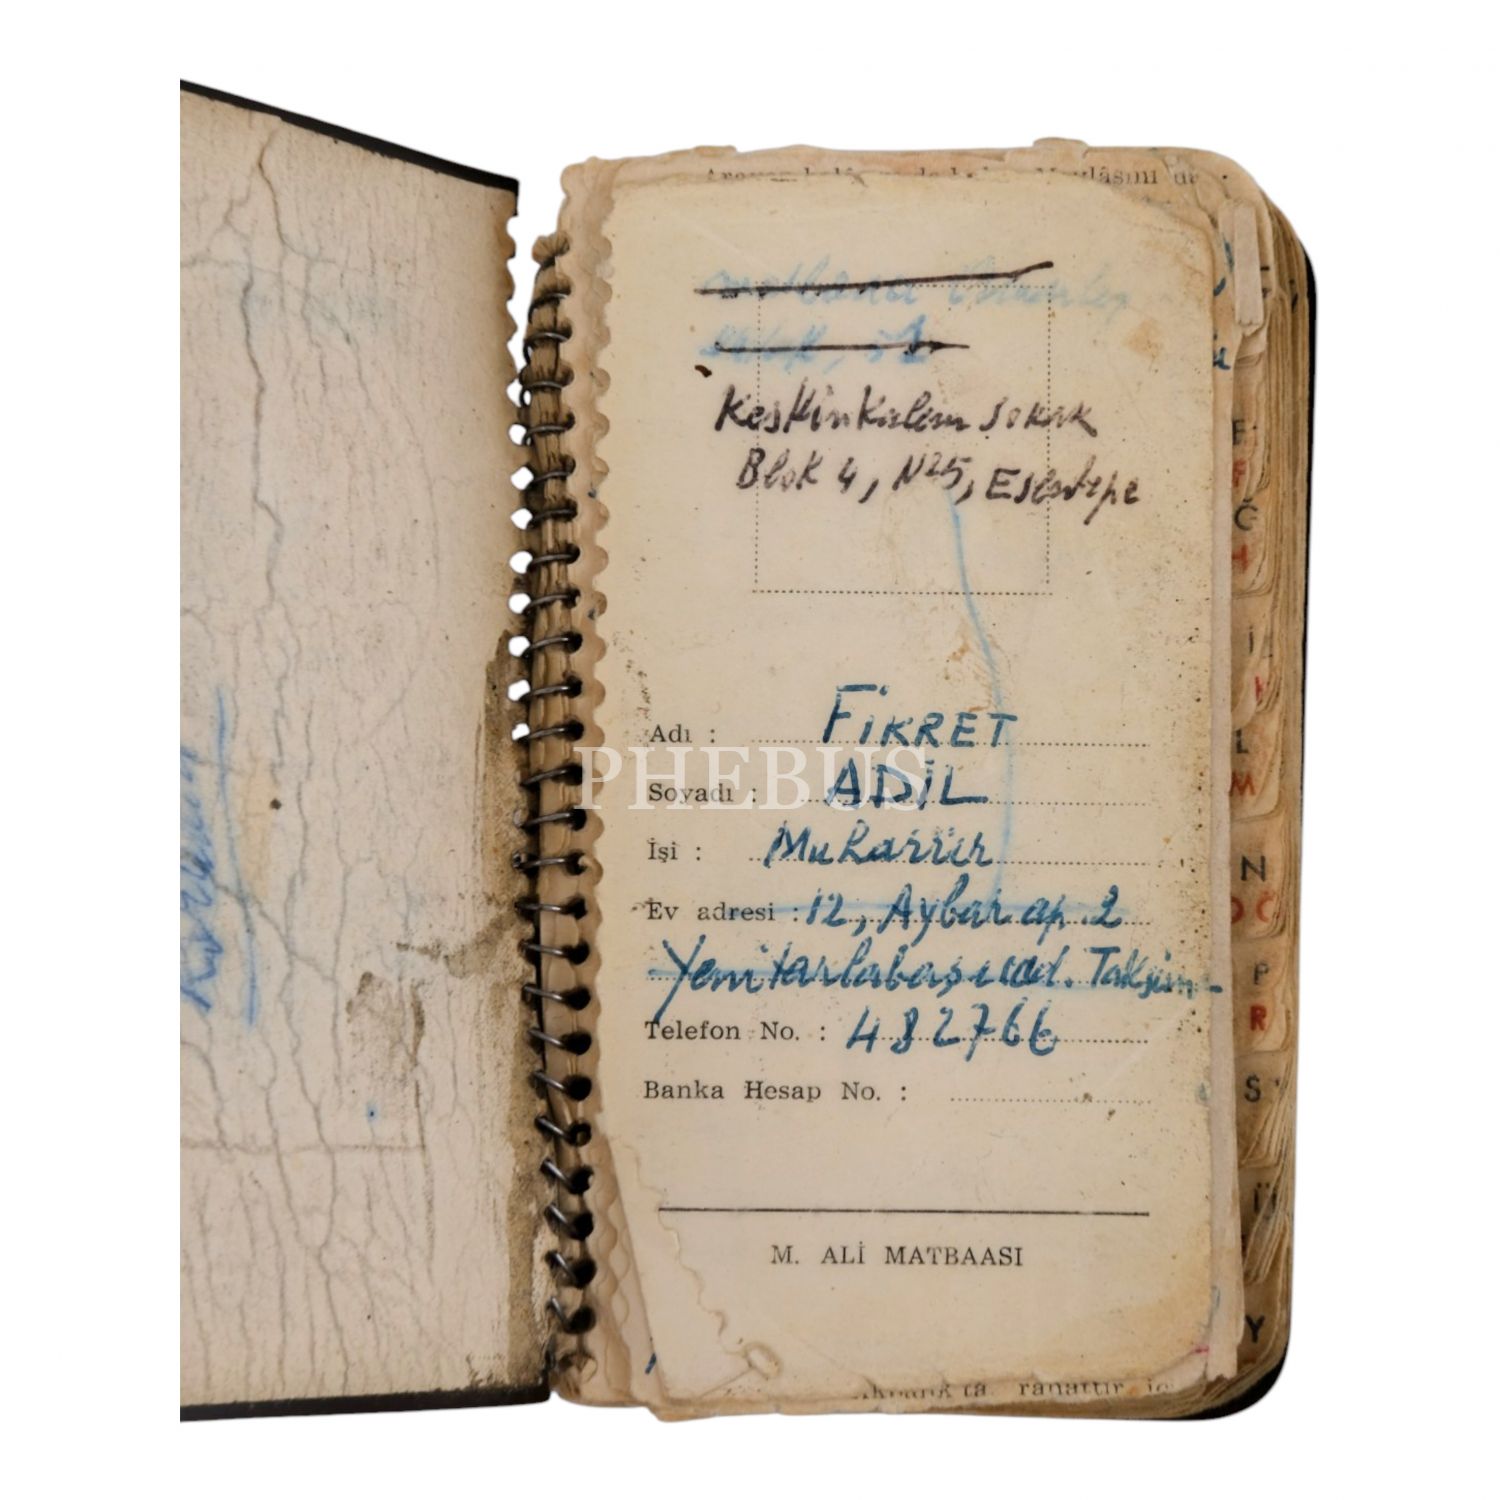 Keskinkalem sokak
Blok 4, N° 25, Esentepe
Adı : FİKRET
Soyadı : ADİL
İşi : Muharrir
Ev adresi : 12, Aybar ap. 2
Yenitarlabaşı cad. Taksim
Telefon No. : 482766
Banka Hesap No. :
M. ALİ MATBAASI
PHEBUS
E
F
Ğ
H
İ
K
L
M
N
O Ö
P
R
S
Ü
Y